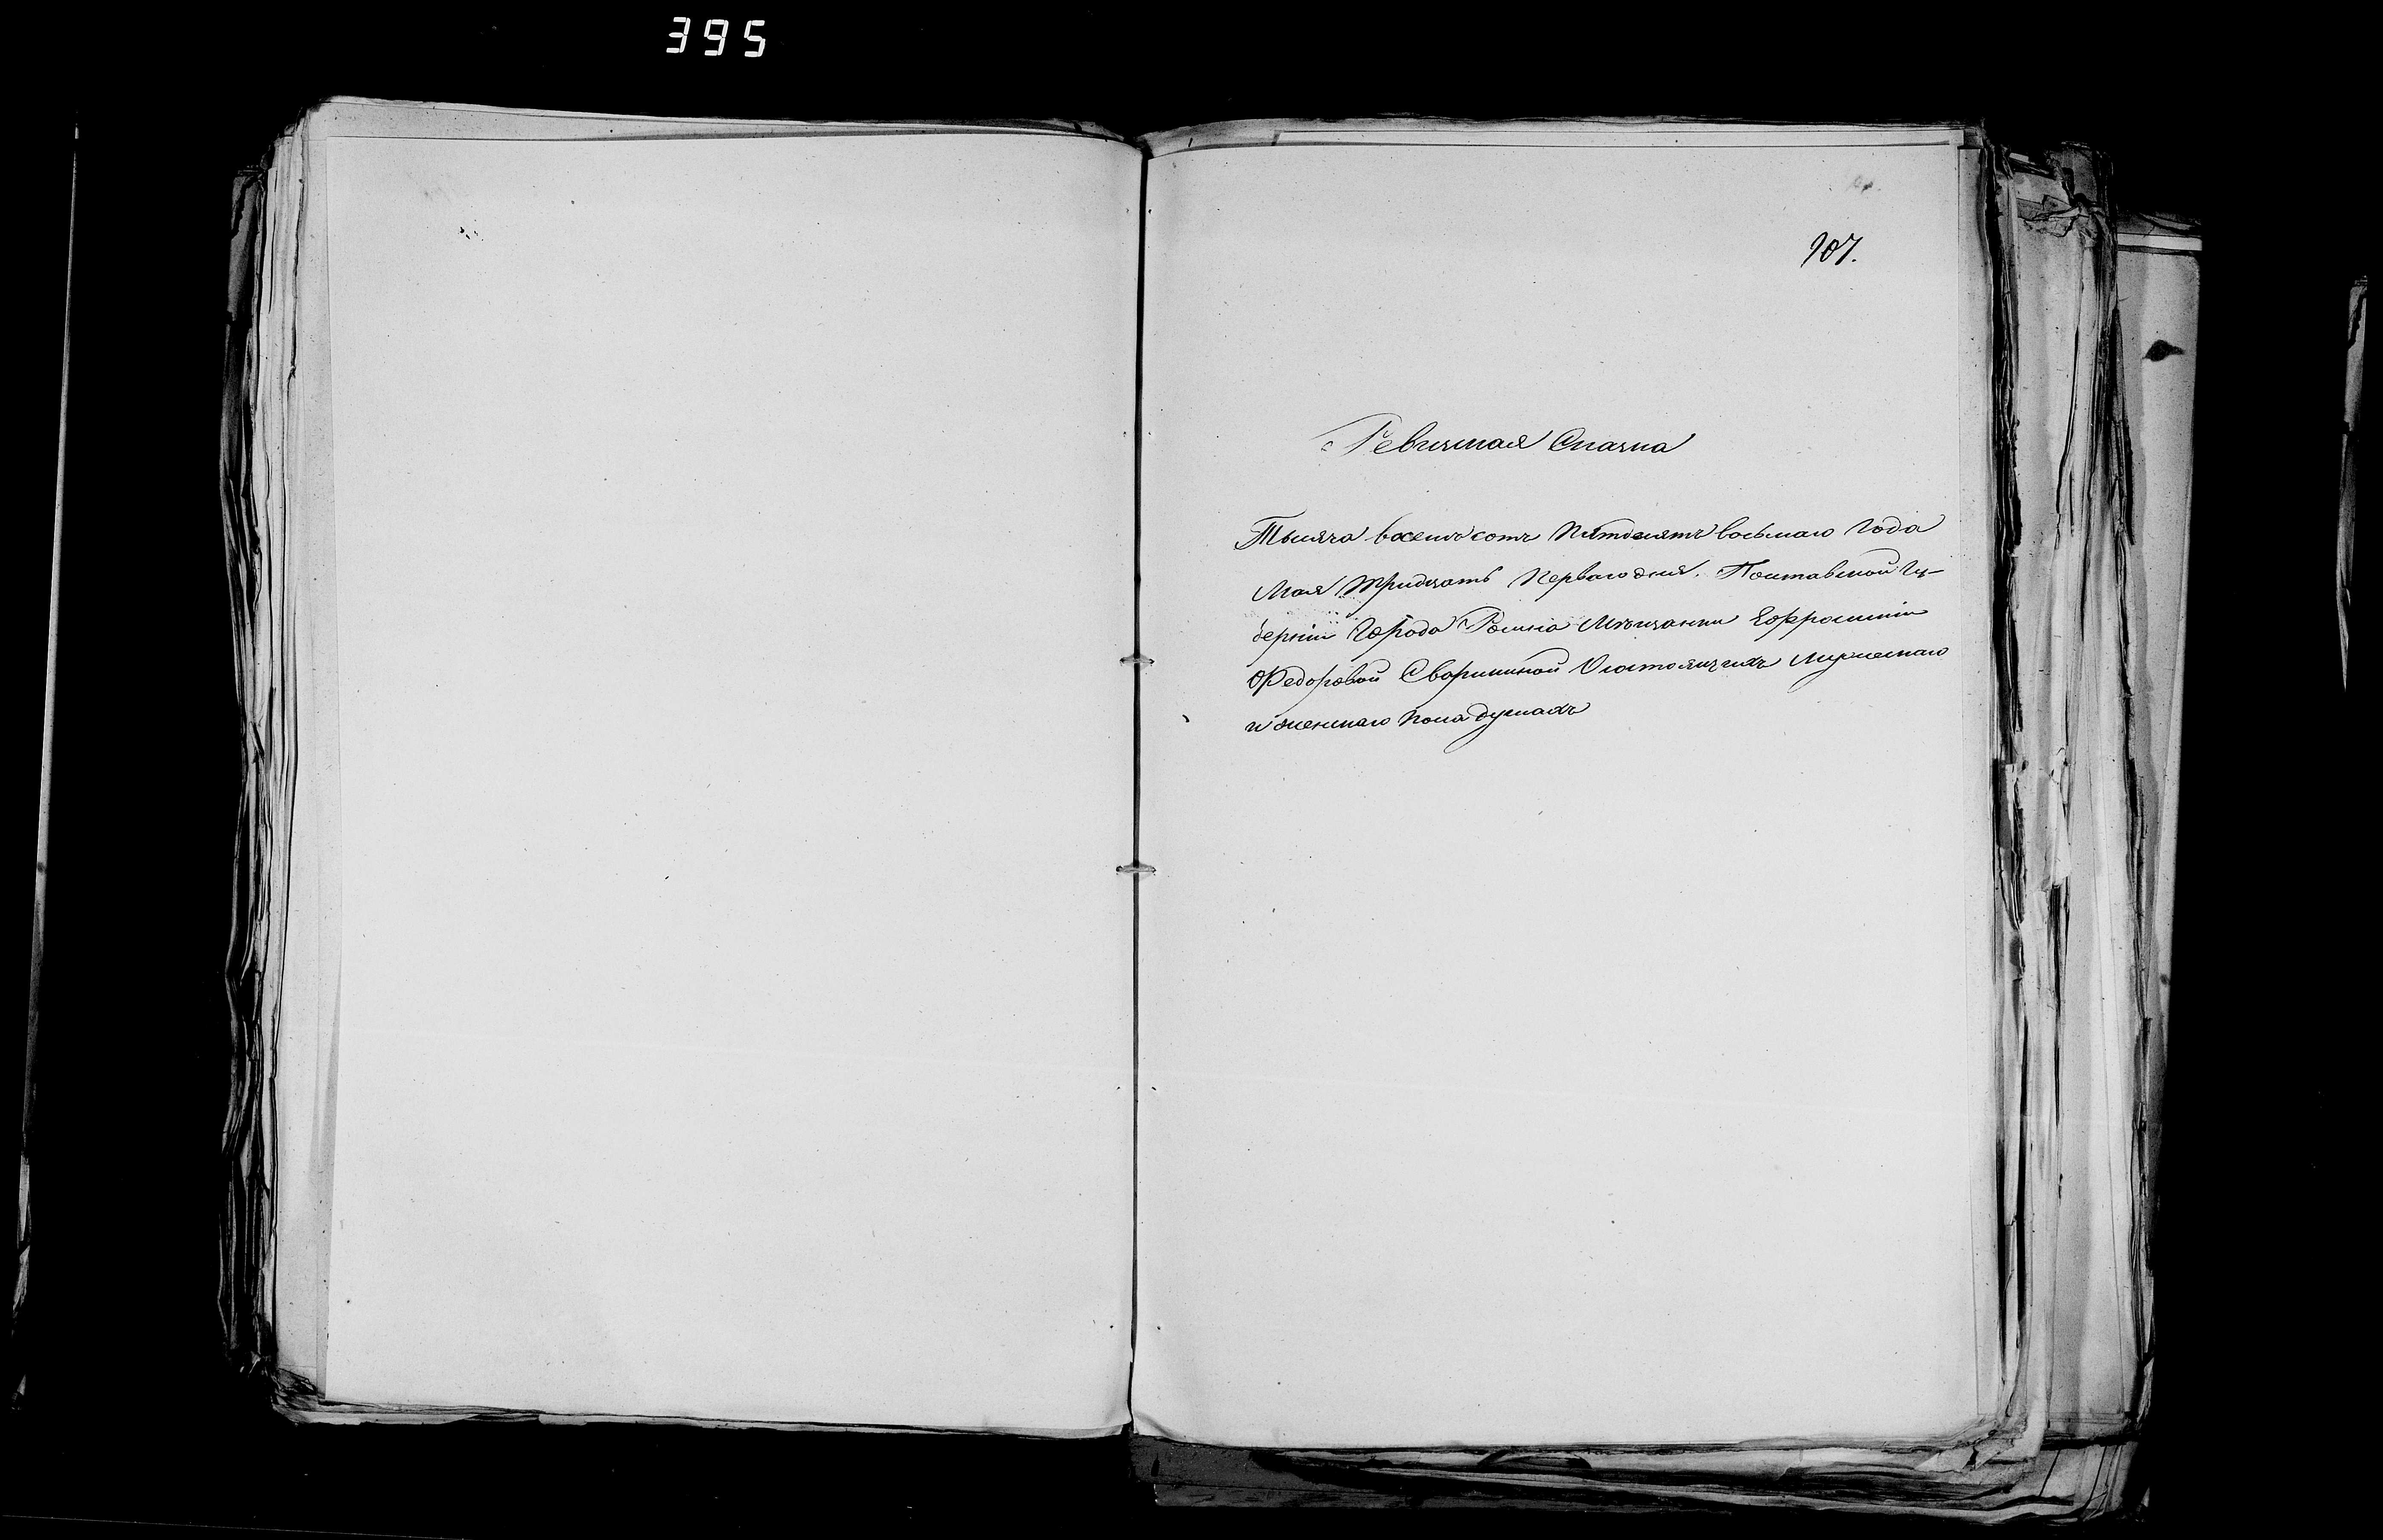 395
107.
Ревизская Сказка
Тысяча восемь сотъ Пятдесятъ восьмаго Года
Мая тридцать Перваго дня. Полтавской Гу-
берніи Города Ромна Мѣщанки Ефросиніи
Федоровой Сворикиной О состоящихъ мужескаго
и женскаго пола душахъ